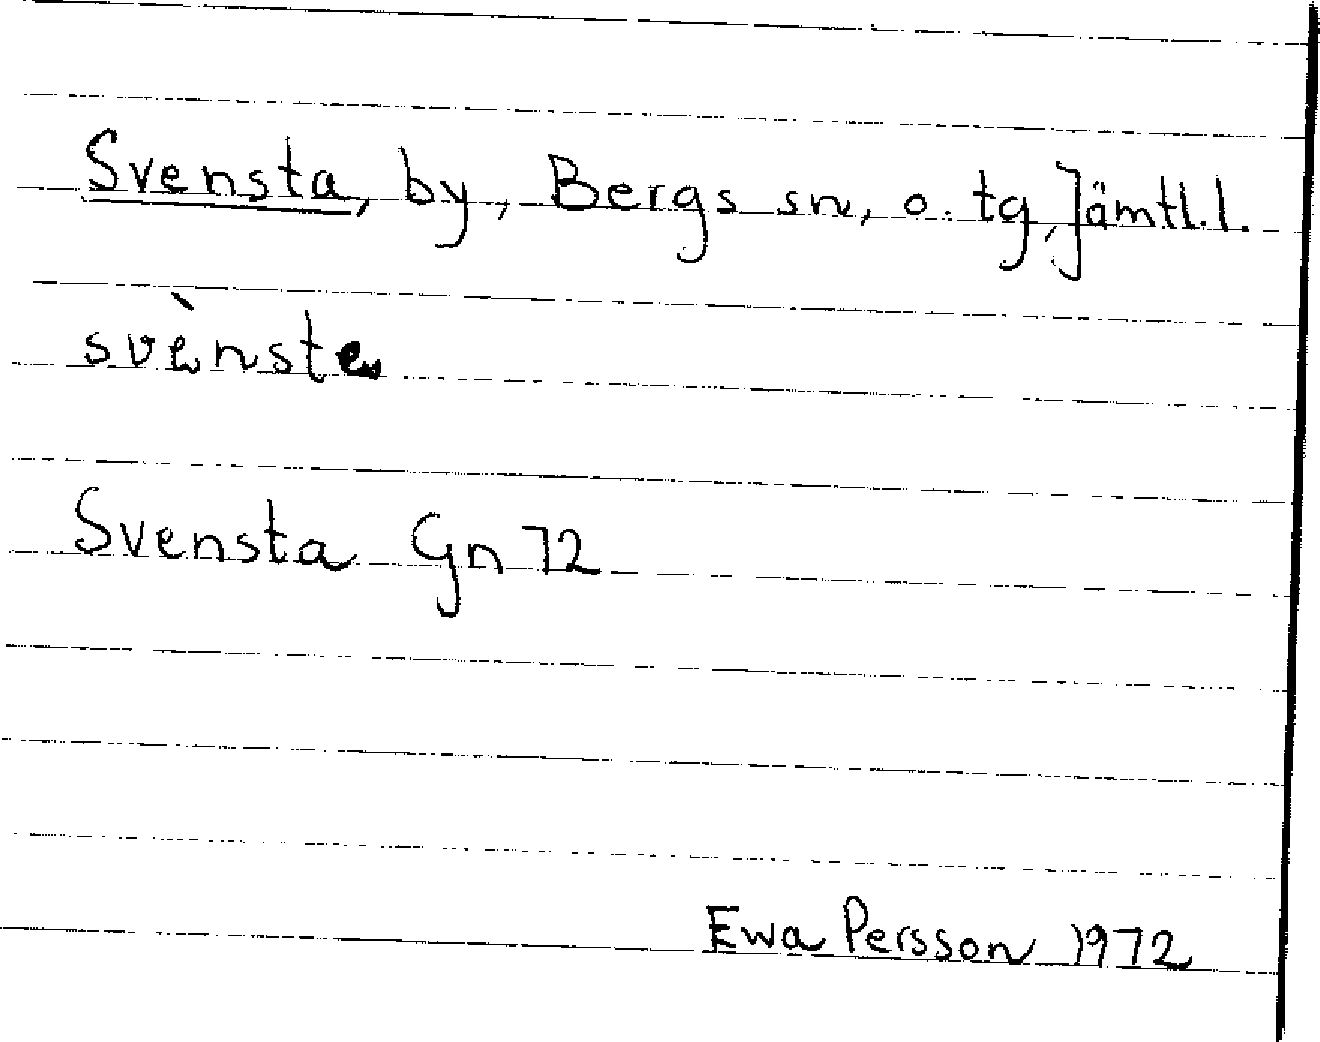 Svensta, by, Bergs sn, o. tg, Jämtl. l.
svènste
Svensta Gn 72
Ewa Persson 1972